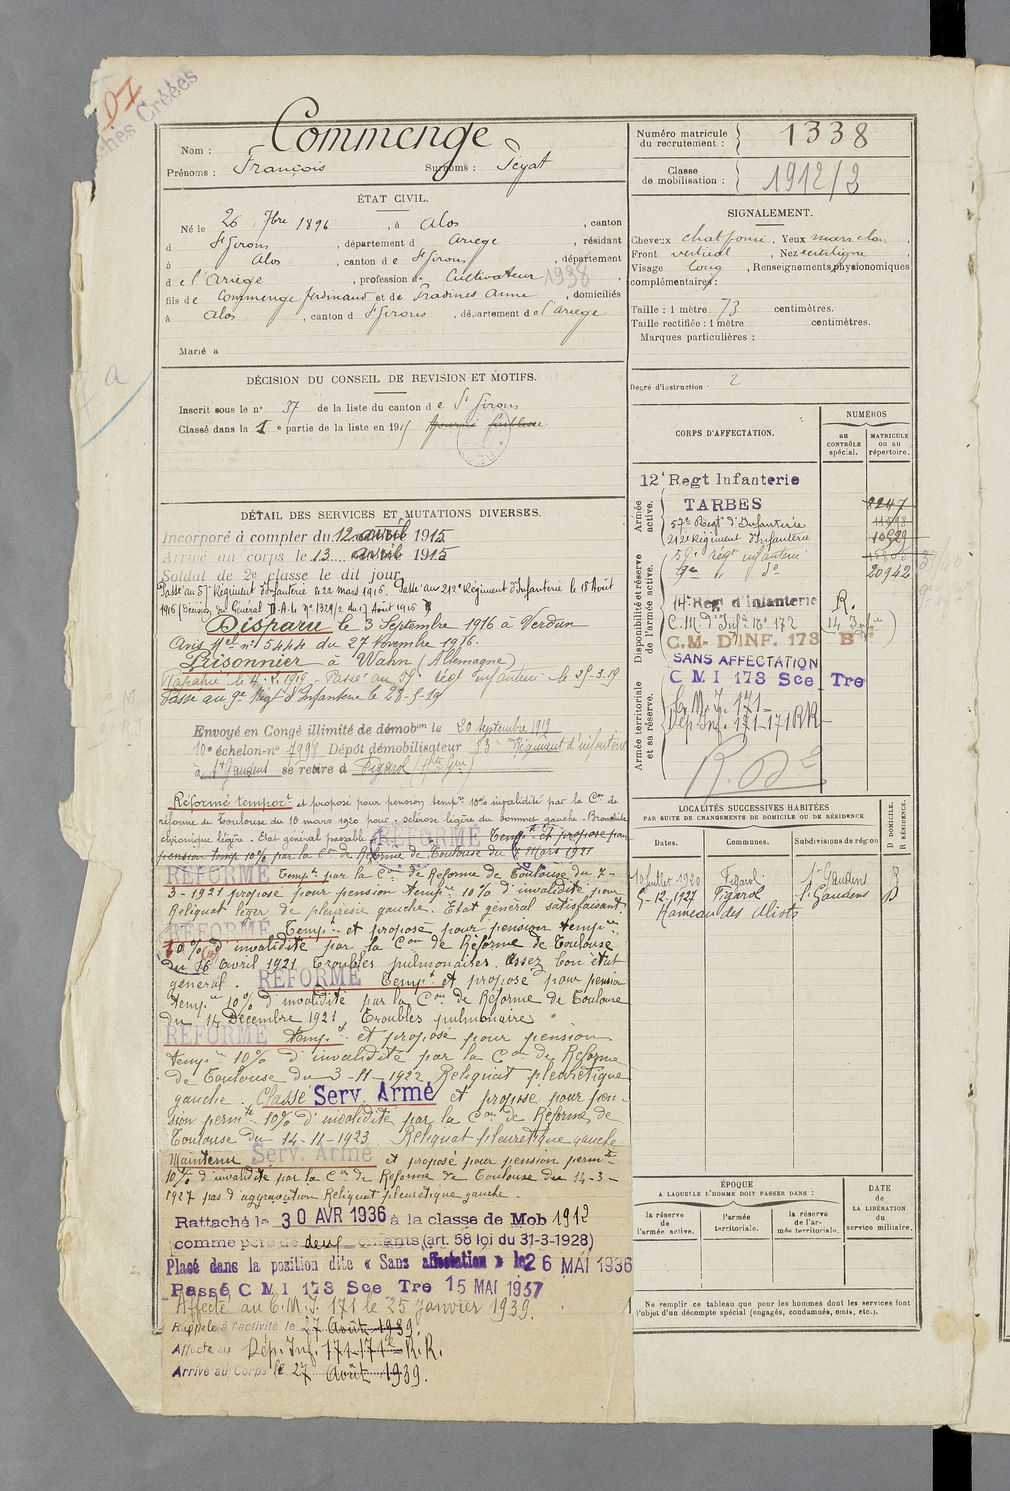 D I
Fiches Créées
Nom : Commenge
Prénoms : François Surnoms : Peyat
Numéro matricule du recrutement : 1338
Classe de mobilisation : 1912/2
ÉTAT CIVIL.
Né le 26 7bre 1896, à Alos, canton
d St Girons, département d Ariège, résidant
à Alos, canton de St Girons, département
de l'Ariège, profession de Cultivateur 1938
fils de Commenge Ferdinand et de Pradines Anne, domiciliés
à Alos, canton d St Girons, département de l'Ariège
Marié à
SIGNALEMENT.
Cheveux chat foncé, Yeux marr clair,
Front vertical, Nez rectiligne,
Visage long, Renseignements physionomiques
complémentaires :
Taille : 1 mètre 73 centimètres.
Taille rectifiée : 1 mètre centimètres.
Marques particulières :
Degré d'instruction : 2
DÉCISION DU CONSEIL DE REVISION ET MOTIFS.
Inscrit sous le n° 37 de la liste du canton de St Girons
Classé dans la 1e partie de la liste en 1915 Ajourné faiblesse
DÉTAIL DES SERVICES ET MUTATIONS DIVERSES.
Incorporé à compter du 12 avril 1915
Arrivé au corps le 13 avril 1915
Soldat de 2e classe le dit jour
Passé au 57 Régiment Infanterie le 22 mars 1916. Passé au 212e Régiment d'Infanterie le 18 Août
1916 (Décision du Général D.A.L. N° 1329/2 du 17 Août 1916)
Disparu le 3 Septembre 1916 à Verdun
Avis Mel n° 5444 du 27 Novembre 1916.
Prisonnier à Wahn (Allemagne)
Rapatrié le 4.2.1919 - Passé au 59e régt Infanterie le 25-3-19
Passé au 9e Régt d'Infanterie le 28-5-19
Envoyé en Congé illimité de démobon le 20 septembre 1919
10e échelon n° 4998 Dépôt démobilisateur 83e Régiment d'infanterie
à St Gaudens se retire à Figarol (Hte Gne)
Réformé tempore et proposé pour pension tempre 10% invalidité par la Con de
réforme de Toulouse du 10 mars 1920 pour : sclérose légère du sommet gauche. Bronchite
chronique légère. Etat général passable. RÉFORMÉ Tempre et proposé pour
pension temp 10% par la Con de Réforme de Toulouse du 7 Mars 1921
RÉFORMÉ Tempre par la Con de Réforme de Toulouse du 7-
3-1921 proposé pour pension tempre 10% d'invalidité pour
Reliquat léger de pleurésie gauche. Etat général satisfaisant.
RÉFORMÉ Tempre et proposé pour pension tempre
10% d'invalidité par la Con de Réforme de Toulouse
du 16 Avril 1921 Troubles pulmonaires. Assez bon état
général. RÉFORMÉ Tempt et proposé pour pension
tempre 10% d'invalidité par la Con de Réforme de Toulouse
du 14 Décembre 1921. Troubles pulmonaires
RÉFORMÉ tempt et proposé pour pension
tempre 10% d'invalidité par la Con de Réforme
de Toulouse du 3-11-1922 Reliquat pleurétique
gauche. Classé Serv. Armé et proposé pour pen-
sion permte 10% d'invalidité par la Con de Réforme de
Toulouse du 14-11-1923. Reliquat pleurétique gauche
Maintenu Serv. Armé et proposé pour pension permte
10% d'invalidité par la Con de Réforme de Toulouse du 14-3-
1927 pas d'aggravation Reliquat pleurétique gauche.
Rattaché le 30 AVR 1936 à la classe de Mob 1912
comme père de deux enfants (art. 58 loi du 31-3-1928)
Placé dans la position dite « Sans affectation » le 26 MAI 1936
Passé C M I 173 Sce Tre 15 MAI 1937
Affecté au C.M.I. 171 le 25 janvier 1939.
Rappelé à l'activité le 27 Août 1939.
Affecté au Dép. Inf. 171-171e R.R.
Arrivé au Corps le 27 Août 1939.
CORPS D'AFFECTATION.
NUMÉROS
au CONTRÔLE spécial.
MATRICULE ou au répertoire.
Armée active.
12e Regt Infanterie
TARBES 8247
57e Régt d'Infanterie 11598
212e Régiment d'Infanterie
Disponibilité et réserve de l'armée active.
59e régt infanterie
9e " do 20942
14e Régt d'Infanterie R.
C. M. d'Infie N° 172
C.M. D'INF. 173 B
SANS AFFECTATION
C M I 173 Sce Tre
Armée territoriale et sa réserve.
C.M.I. 171
Dép. Inf. 171-171 RR
LOCALITÉS SUCCESSIVES HABITÉES
PAR SUITE DE CHANGEMENTS DE DOMICILE OU DE RÉSIDENCE
D DOMICILE.
R RÉSIDENCE.
Dates. Communes. Subdivisions de région
10 juillet 1920 Figarol St Gaudens R
9-12-1927 Figarol St Gaudens D
Hameau des Aliots
ÉPOQUE
A LAQUELLE L'HOMME DOIT PASSER DANS :
DATE DE LA LIBÉRATION du service militaire.
la réserve de l'armée active.
l'armée territoriale.
la réserve de l'armée territoriale.
Ne remplir ce tableau que pour les hommes dont les services font
l'objet d'un décompte spécial (engagés, condamnés, omis, etc.).